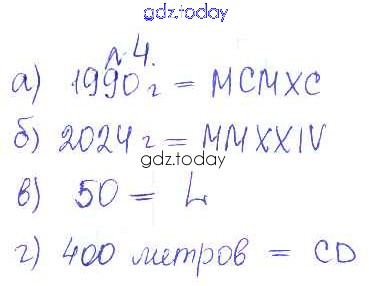 gdz.today
№4.
а) 1990 г = MCMXC
б) 2024 г = MMXXIV
gdz.today
в) 50 = L
г) 400 метров = CD